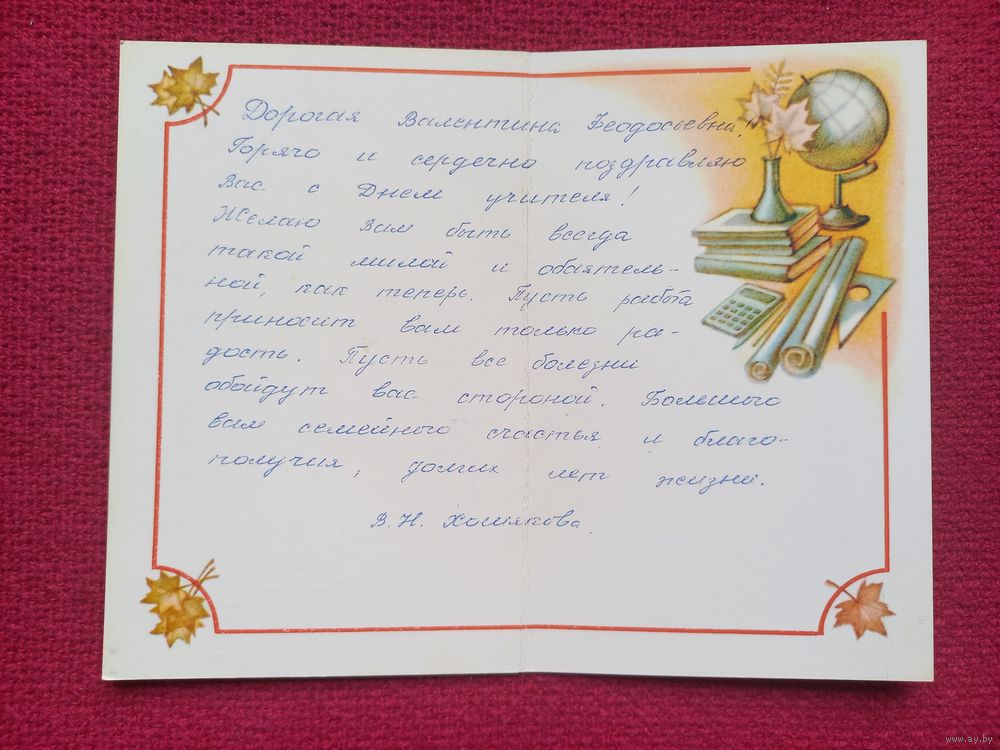 Дорогая Валентина Феодосьевна!
Горячо и сердечно поздравляю
Вас с Днем учителя!
Желаю Вам быть всегда
такой милой и обаятель-
ной, как теперь. Пусть работа
приносит вам только ра-
дость. Пусть все болезни
обойдут вас стороной. Большого
вам семейного счастья и благо-
получия, долгих лет жизни.
В. Н. Хомякова.
www.ay.by